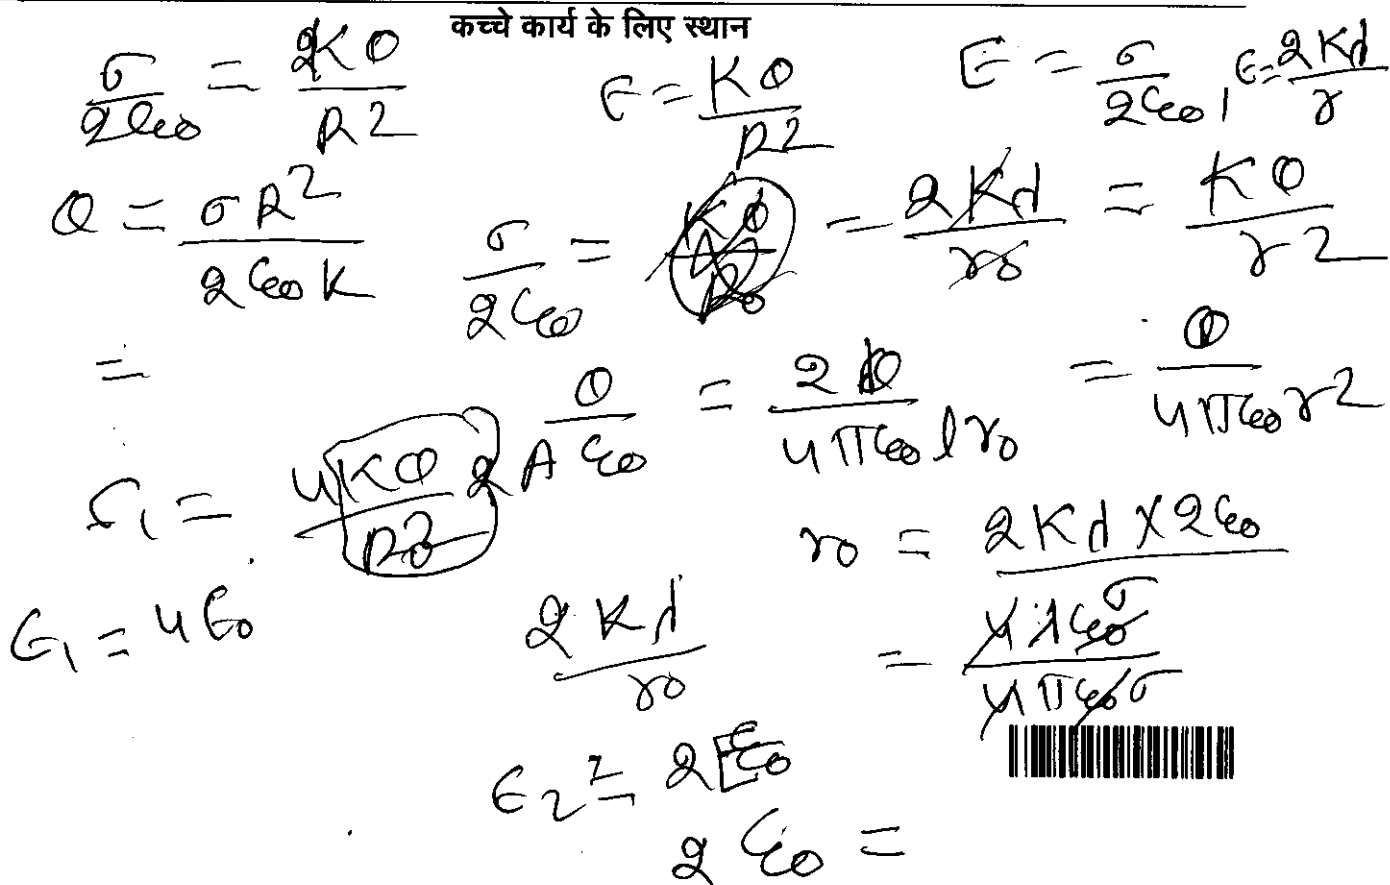 कच्चे कार्य के लिए स्थान
σ/2ε₀ = 2KQ/R²
E = KQ/R²
E = σ/2ε₀, E = 2Kλ/r
Q = σR²/2ε₀K
σ/2ε₀ = = 2Kλ/r₀ = KQ/r²
=
Q/2Aε₀ = 2Q/4πε₀lr₀ = Q/4πε₀r²
E₁ = 4KQ/R₀²
r₀ = 2Kλ×2ε₀/σ
E₁ = 4E₀
2Kλ/r₀
= 4λε₀/4πε₀σ
E₂ = 2E₀
2ε₀ =